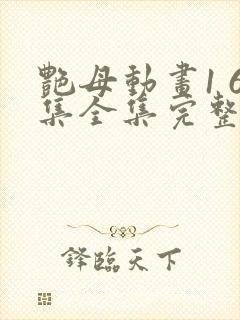 艷母動畫1 6
集全集完整
鋒臨天下